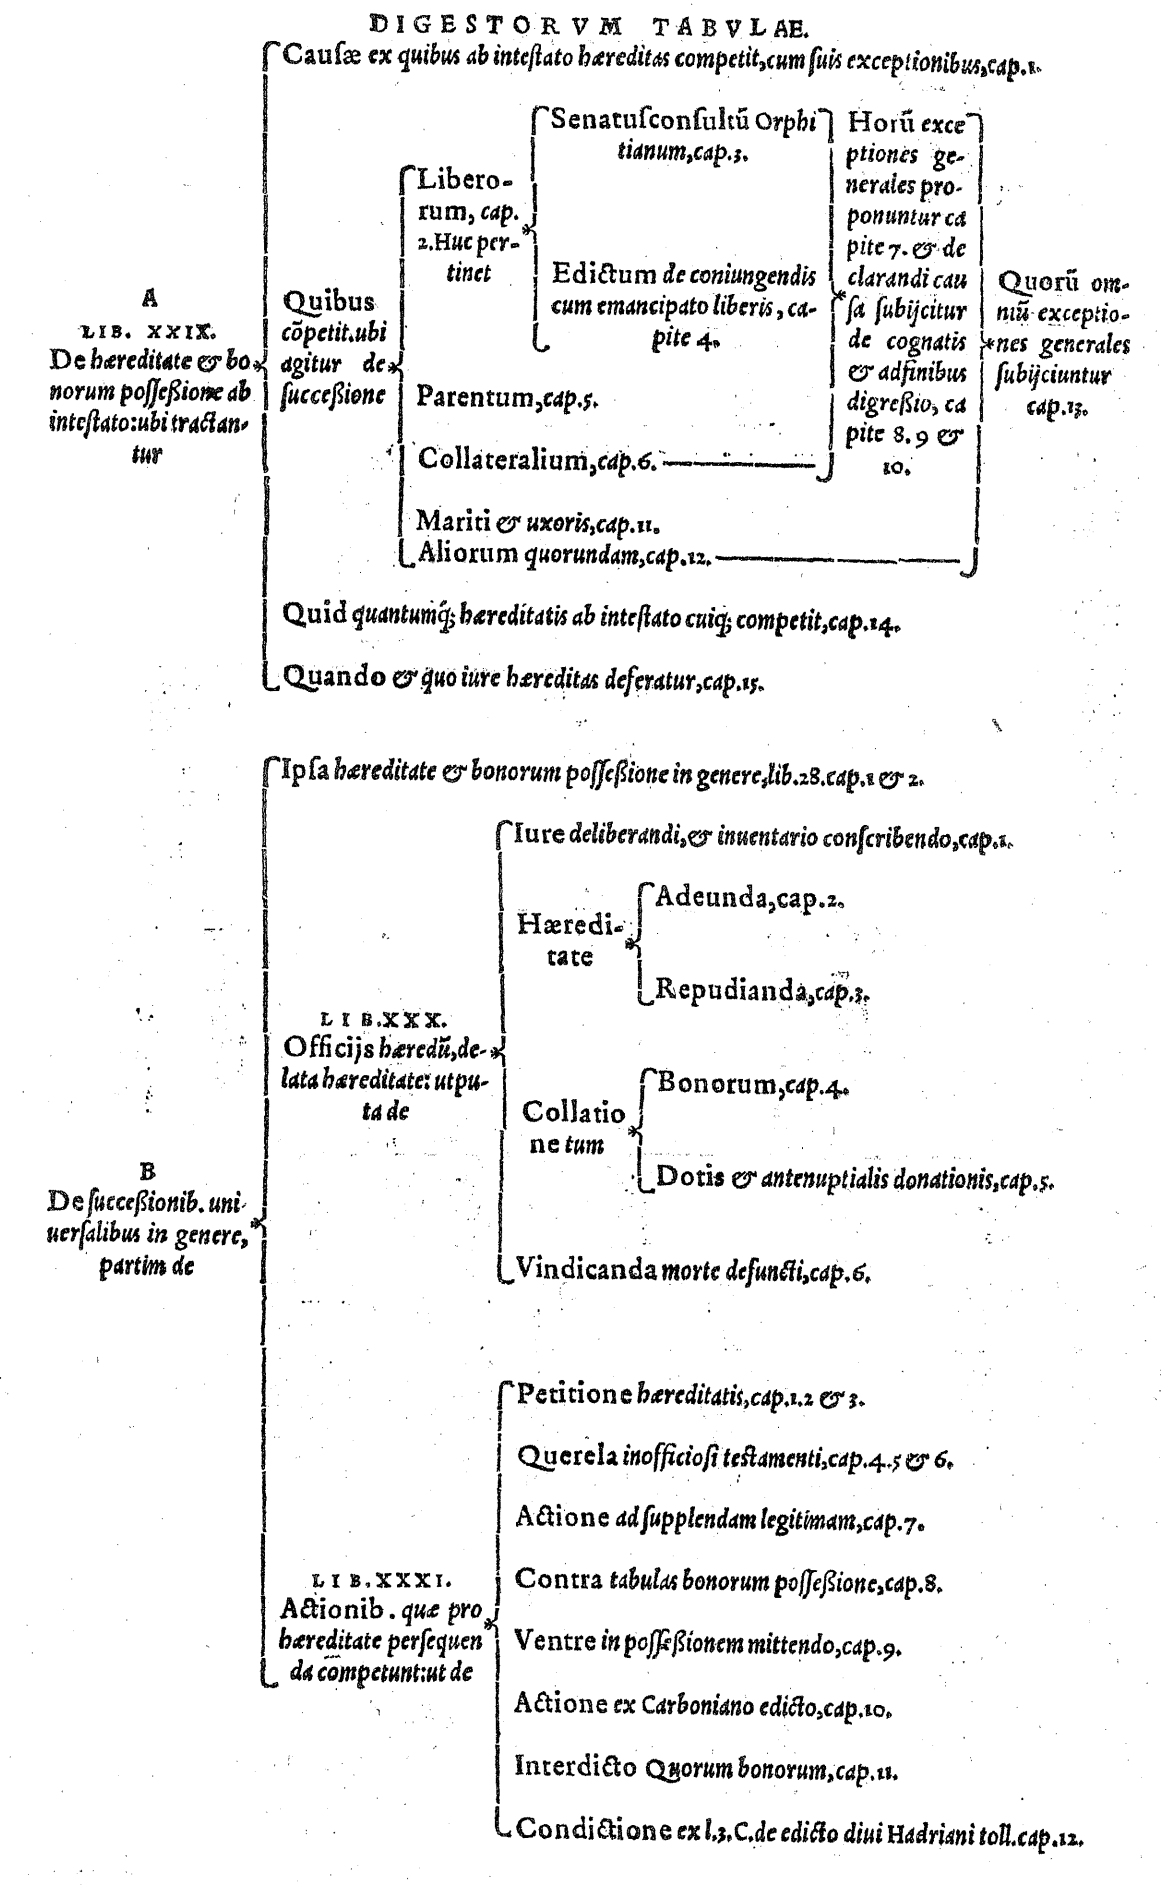 DIGESTORVM TABVLAE.
Cauſæ ex quibus ab inteſtato hæreditas competit, cum ſuis exceptionibus, cap.1.
A
LIB. XXIX.
De hæreditate & bo
norum poſſeßione ab
inteſtato: ubi tractan-
tur
Quibus
cõpetit. ubi
agitur de
ſucceßione
Libero-
rum, cap.
2. Huc per-
tinet
Senatuſconſultũ Orphi
tianum, cap.3.
Edictum de coniungendis
cum emancipato liberis, ca-
pite 4.
Parentum, cap.5.
Collateralium, cap.6.
Horũ exce
ptiones ge-
nerales pro-
ponuntur ca
pite 7. & de
clarandi cau
ſa ſubijcitur
de cognatis
& adfinibus
digreßio, ca
pite 8. 9 &
10.
Mariti & uxoris, cap.11.
Aliorum quorundam, cap.12.
Quorũ om-
niũ exceptio-
nes generales
ſubijciuntur
cap.13.
Quid quantumq́; hæreditatis ab inteſtato cuiq; competit, cap.14.
Quando & quo iure hæreditas deferatur, cap.15.
B
De ſucceßionib. uni-
uerſalibus in genere,
partim de
Ipſa hæreditate & bonorum poſſeßione in genere, lib.28. cap.1 & 2.
LIB. XXX.
Officijs hæredũ, de-
lata hæreditate: utpu-
ta de
Iure deliberandi, & inuentario conſcribendo, cap.1.
Hæredi-
tate
Adeunda, cap.2.
Repudianda, cap.3.
Collatio
ne tum
Bonorum, cap.4.
Dotis & antenuptialis donationis, cap.5.
Vindicanda morte defuncti, cap.6.
LIB. XXXI.
Actionib. quæ pro
hæreditate perſequen
da competunt: ut de
Petitione hæreditatis, cap.1.2 & 3.
Querela inofficioſi teſtamenti, cap.4.5 & 6.
Actione ad ſupplendam legitimam, cap.7.
Contra tabulas bonorum poſſeßione, cap.8.
Ventre in poſſeßionem mittendo, cap.9.
Actione ex Carboniano edicto, cap.10.
Interdicto Quorum bonorum, cap.11.
Condictione ex l.3. C. de edicto diui Hadriani toll. cap.12.